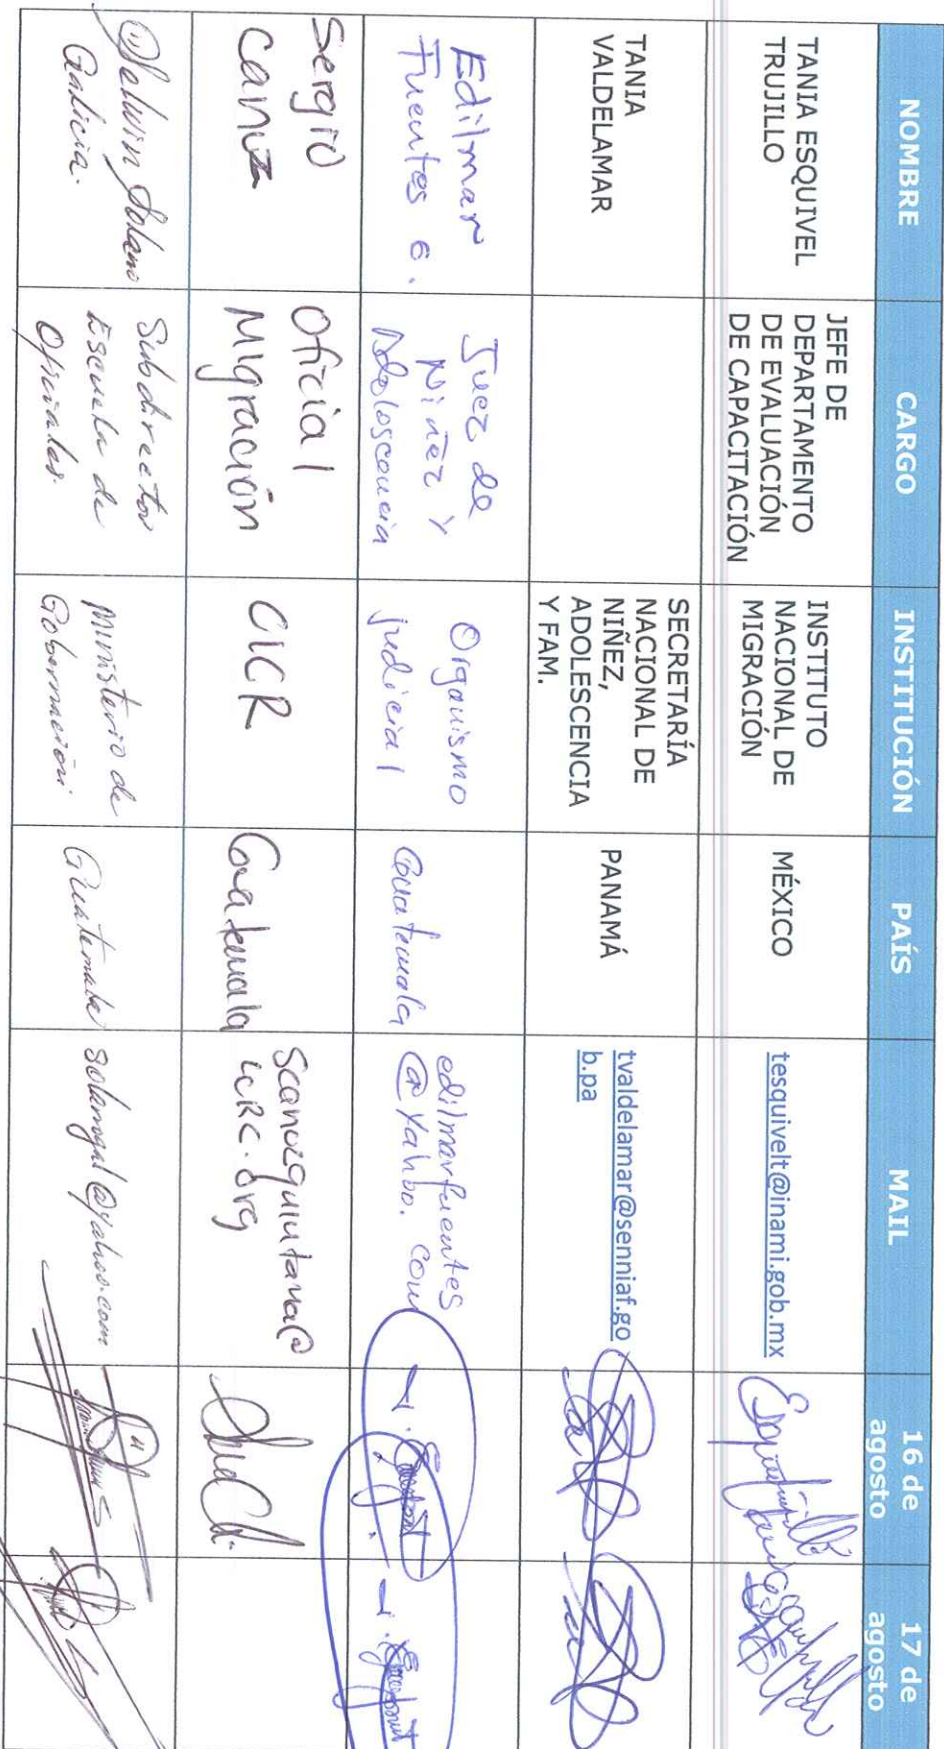 NOMBRE
CARGO
INSTITUCIÓN
PAÍS
MAIL
16 de
agosto
17 de
agosto
TANIA ESQUIVEL
TRUJILLO
JEFE DE
DEPARTAMENTO
DE EVALUACIÓN
DE CAPACITACIÓN
INSTITUTO
NACIONAL DE
MIGRACIÓN
MÉXICO
tesquivelt@inami.gob.mx
TANIA
VALDELAMAR
SECRETARÍA
NACIONAL DE
NIÑEZ,
ADOLESCENCIA
Y FAM.
PANAMÁ
tvaldelamar@senniaf.go
b.pa
Edilmar
Fuentes E.
Juez de
Niñez y
Adolescencia
Organismo
judicial
Guatemala
edilmarfuentes
@yahoo.com
Sergio
Canuz
Oficial
Migración
CICR
Guatemala
scanuzquintana@
icrc.org
Selwin Solano
Galicia.
Subdirector
Escuela de
Oficiales.
Ministerio de
Gobernación.
Guatemala
solanogal@yahoo.com